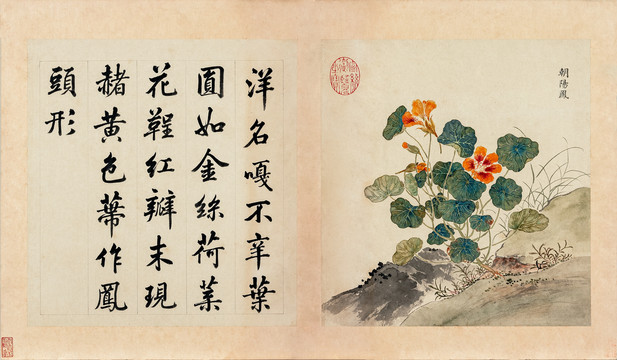 朝陽鳳
洋名嘎不辛葉
圓如金絲荷葉
花鞓紅瓣末現
赭黃色蔕作鳳
頭形